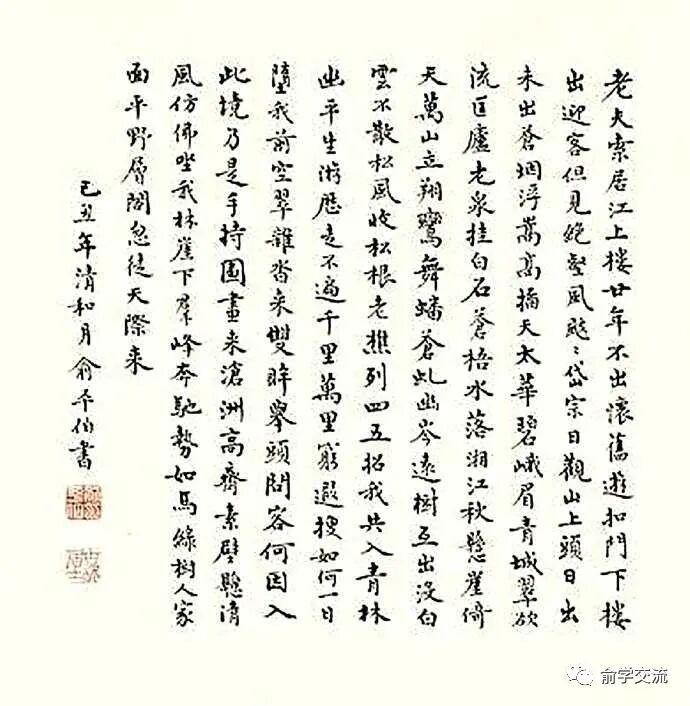 老夫索居江上樓廿年不出懷舊遊扣門下樓
出迎客但見絶壑風颼〻岱宗日觀山上頭日出
未出蒼烟浮嵩高插天太華碧峨眉青城翠欲
流匡廬老泉挂白石蒼梧水落湘江秋懸崖倚
天萬山立翔鸞舞蟠蒼虬幽岑遠樹互出沒白
雲不散松風收松根老樵列四五招我共入青林
幽平生游歷走不遍千里萬里窮遐搜如何一日
墮我前空翠雜沓來雙眸舉頭問客何因入
此境乃是手持圖畫來滄洲高齋素壁懸清
風仿佛坐我林崖下羣峰奔馳勢如馬綠樹人家
面平野層閣忽從天際來
己丑年清和月俞平伯書
俞学交流